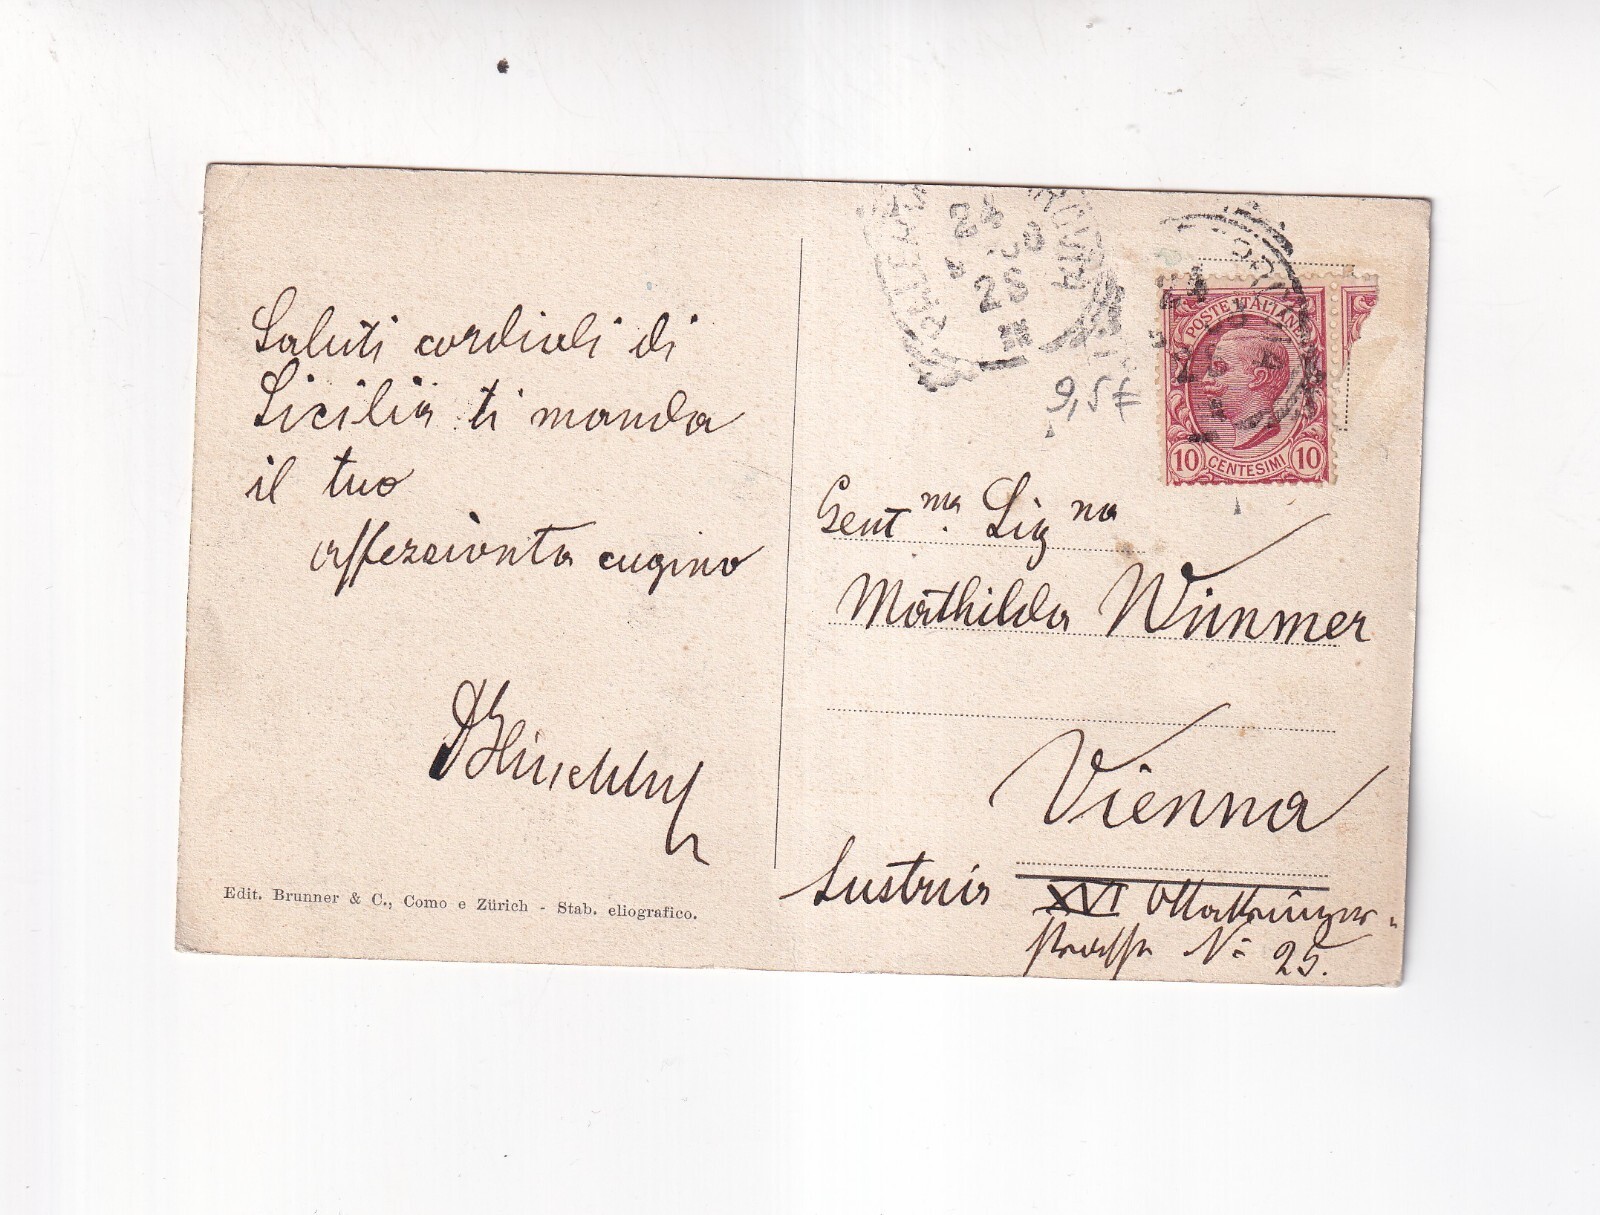 Saluti cordiali di
Sicilia ti manda
il tuo
affezzionta cugino
Edit. Brunner & C., Como e Zürich - Stab. eliografico.
28
25
9,5
POSTE ITALIANE
10 CENTESIMI 10
Gent ma. Sig na
Mathilda Wimmer
Vienna
Austria XVI Ottakringer-
strasse No 25.